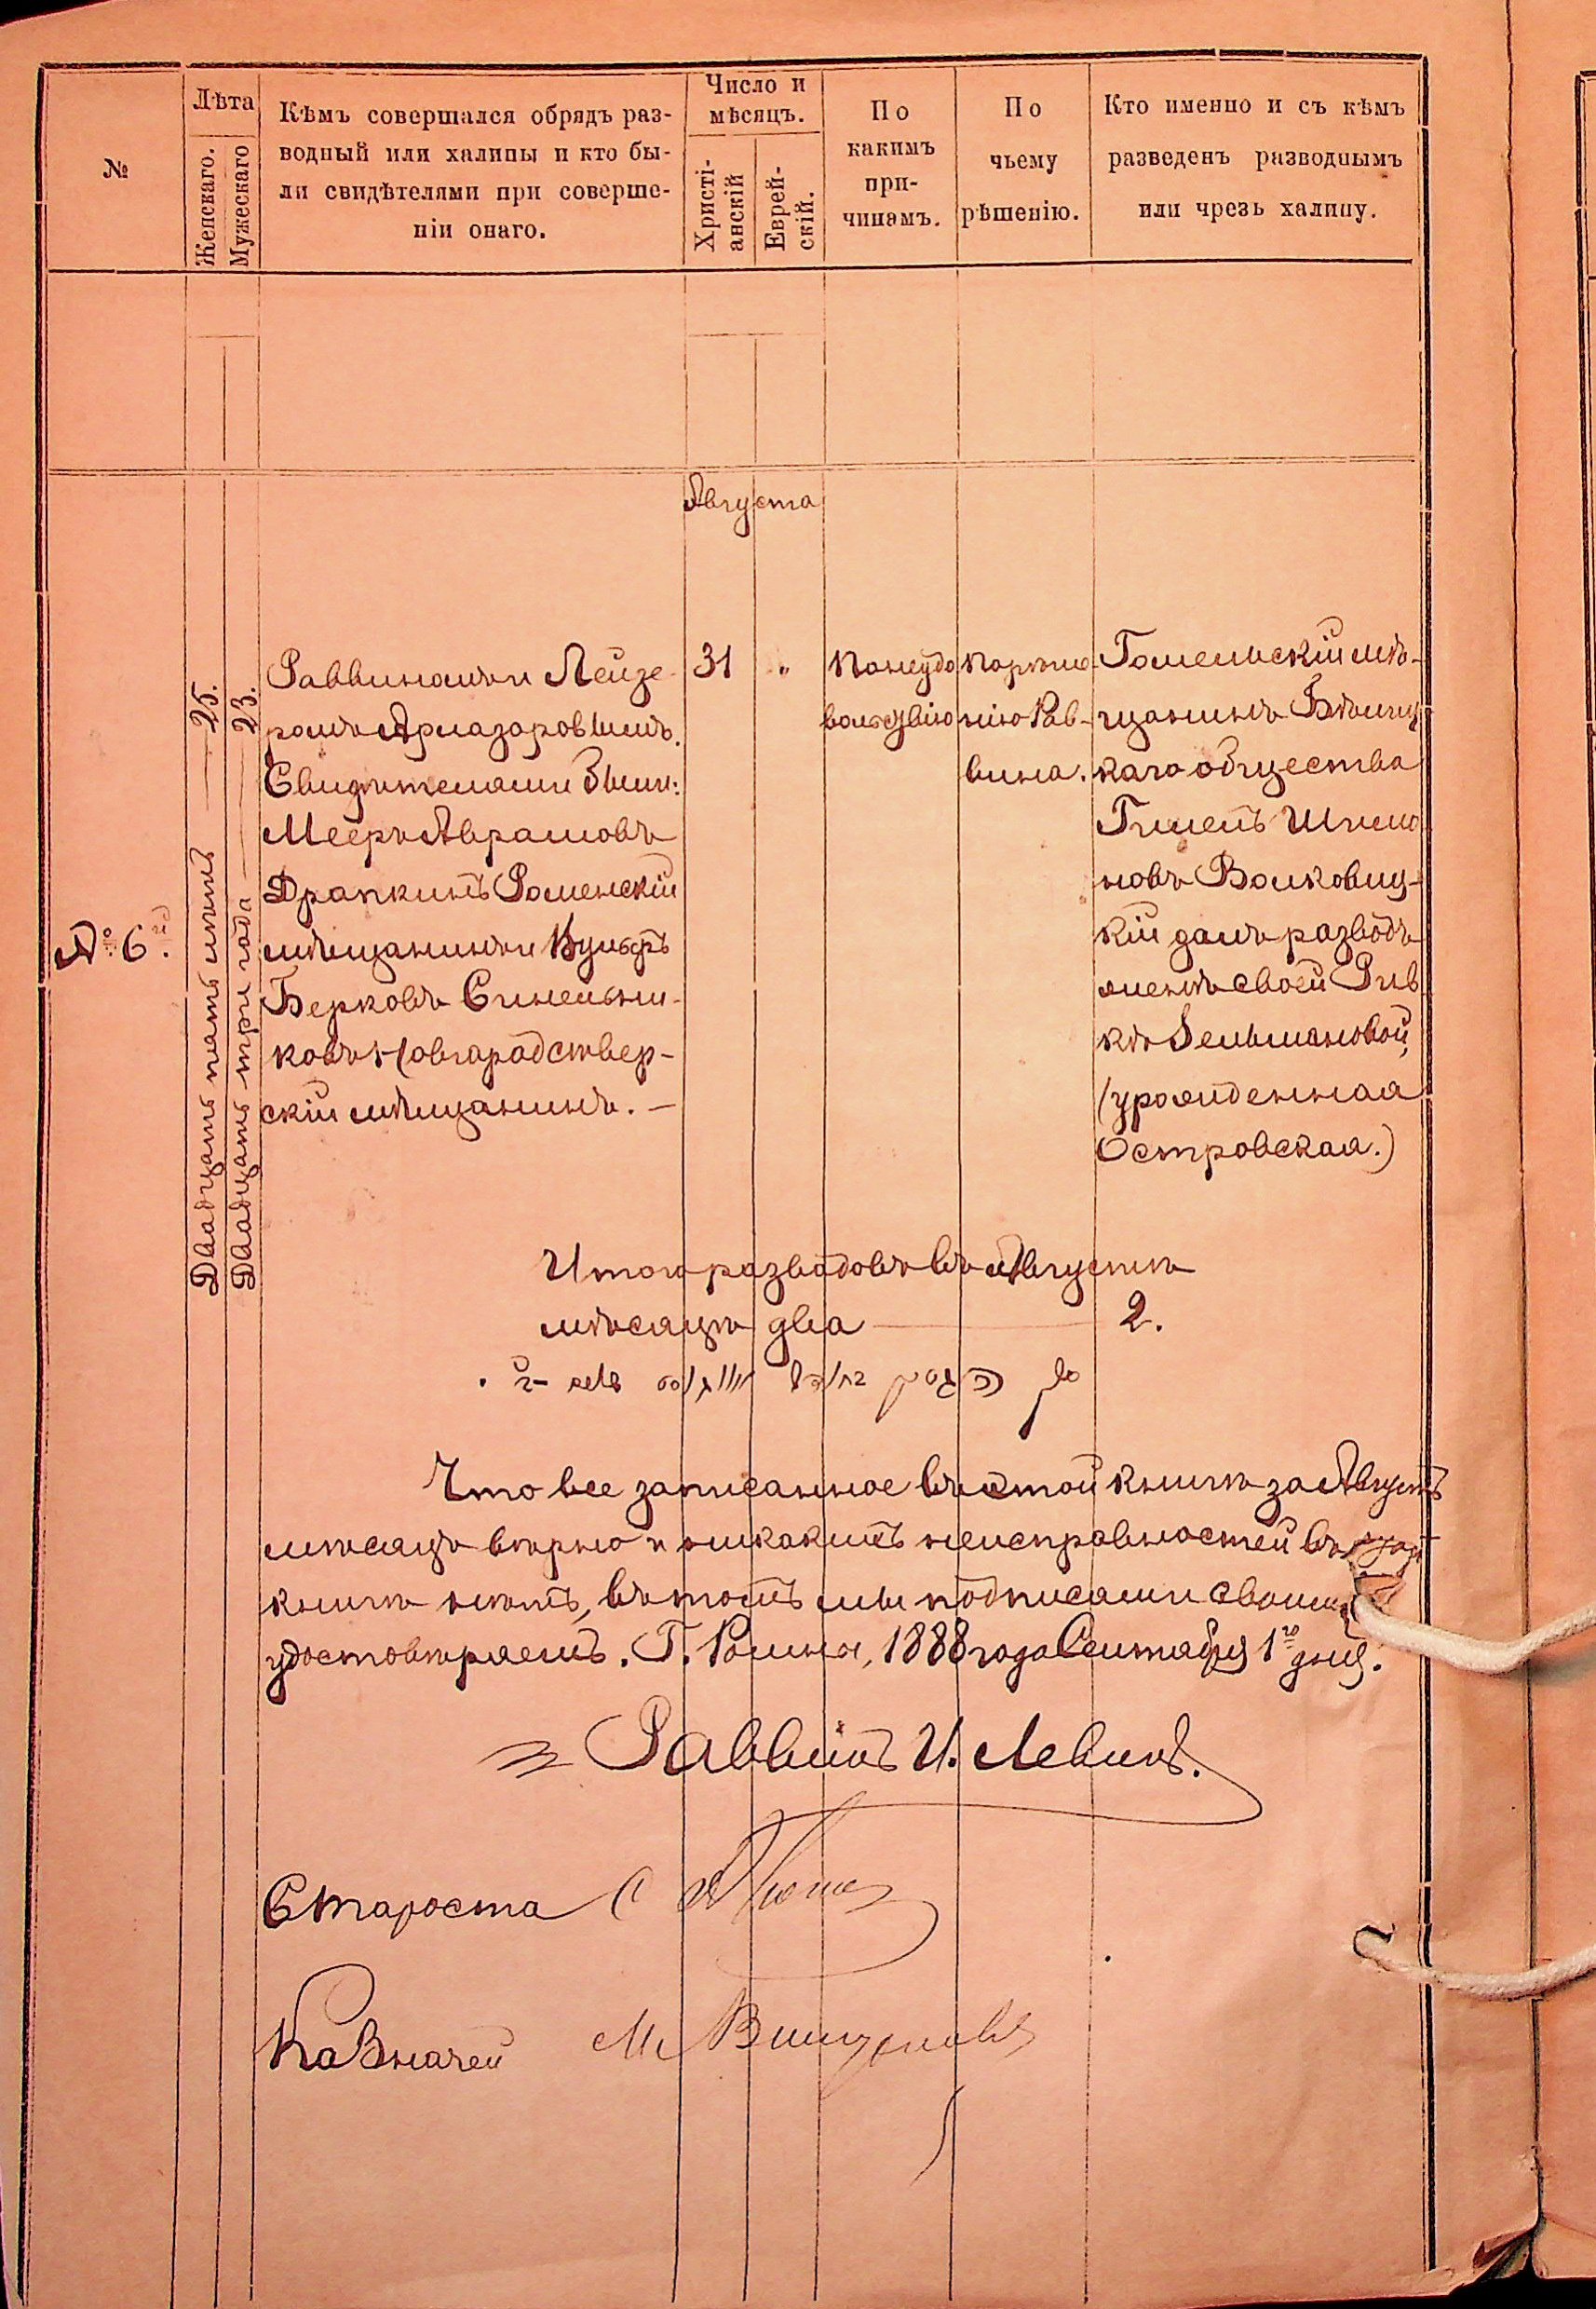 №
Лѣта
Женскаго.
Мужескаго
Кѣмъ совершался обрядъ раз-
водный или халицы и кто бы-
ли свидѣтелями при соверше-
ніи онаго.
Число и
мѣсяцъ.
Христі-
анскій
Еврей-
скій.
По
какимъ
при-
чинамъ.
По
чьему
рѣшенію.
Кто именно и съ кѣмъ
разведенъ разводнымъ
или чрезъ халицу.
Августа
№ 6й.
Двадцать пять лѣтъ — 25.
Двадцать три года — 23.
Раввиномъ Лейзе-
ромъ
Свидѣтелями были:
Мееръ Аврамовъ
Драпкинъ Роменскій
мѣщанинъ и
Берковъ Синельни-
ковъ Новгородствер-
скій мѣщанинъ. —
31 "
По неудо
вольствію
По рѣше-
нію Рав-
вина.
Гомельскій мѣ-
щанинъ Бѣлиц
каго общества
Гилель Шлио
новъ Волковиц-
кій далъ разводъ
женѣ своей Рив
кѣ Зельмановой,
(урожденная
Островская.)
Итого разводовъ въ Августѣ
мѣсяцѣ два — 2.
Что все записанное въ этой книгѣ за Августъ
мѣсяцъ вѣрно и никакихъ неисправностей въ этой
книгѣ нѣтъ, въ томъ мы подписами своими
удостовѣряемъ. Г. Ромны, 1888 года Сентября 1го дня.
Раввинъ И. Левинъ.
Староста С
Казначей М